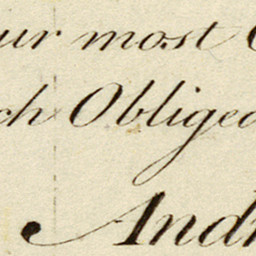 ur most
ch Obliged
And